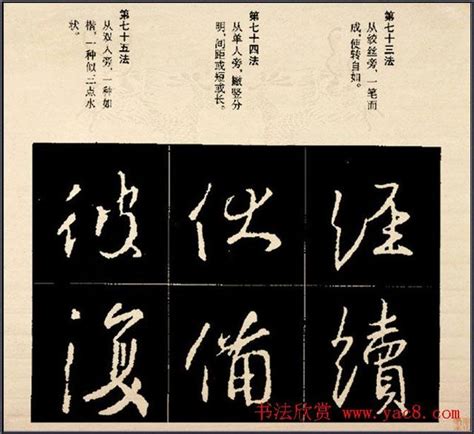 第七十三法
从绞丝旁，一笔而
成，使转自如。
第七十四法
从单人旁，撇竖分
明，间距或短或长。
第七十五法
从双人旁，一种如
楷，一种似三点水
状。
經
續
伏
備
彼
復
书法欣赏 www.yac8.com